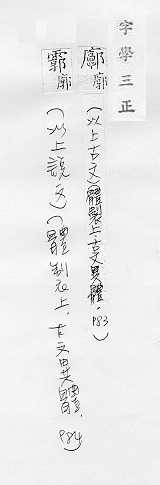 字學三正
廓 (以上古文)體製上.古文異體. P83)
霩 廓 (以上說文)(體制上.古文異體. P84)